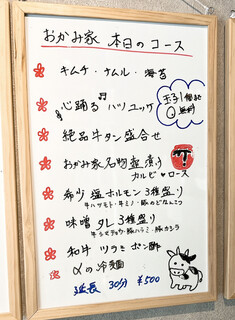 おかみ家 本日の コース
キムチ・ナムル・海苔
心踊る ハツユッケ
玉子1個
無料
絶品牛タン盛合せ
おかみ家名物壺漬け
カルビ・ロース
希少 塩ホルモン3種盛り
牛ハツモト・牛ミノ・豚のどなんこつ
味噌 タレ3種盛り
牛シマチョウ・豚ハラミ・豚カシラ
和牛 ツラミ ポン酢
〆の冷麺
延長 30分 ¥500